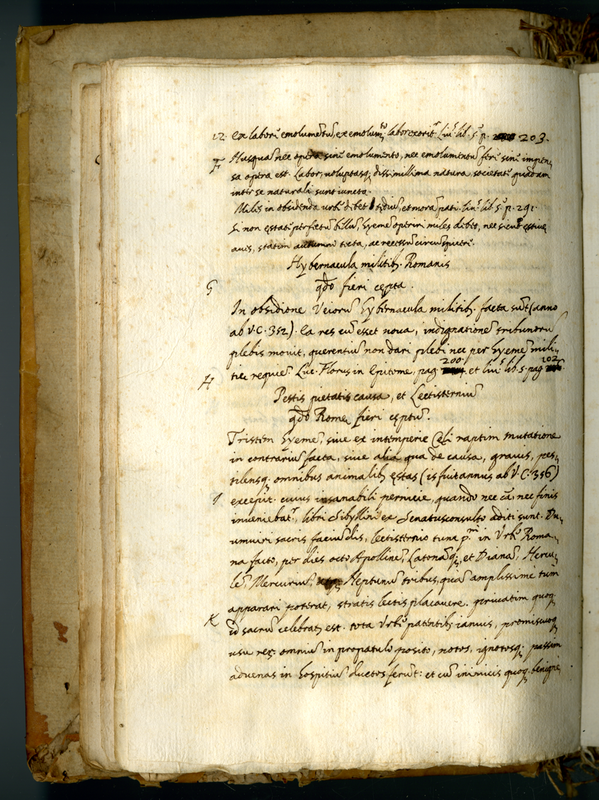 12. ex labori emolumētū, ex emolum.to labor exorit.r Liu.s lib. 5. p. 203.
F Nusquā nec opera sinē emolumento, nec emolumentū ferī sinē impen,
sa opera est. Labor, voluptasq; dissimillima natura, societatē quadam
inter se naturali sunt iuncta.
Miles in obsidenda urbē debet tædiū, et mora pati. Liu.s lib. 5. p. 291.
Si non æstatē perfectū bellū, hyemē opperiri miles debet, nec sicut æstiuæ
auis, statim autumno tecta, ac recessū circūspicere.
Hybernacula militib. Romanis
G qdo fieri cæpta.
In obsidione Veiorū hybernacula militib. facta sunt (anno
ab V.C. 352). Ea res cū esset noua, indignationē tribunorū
plebis mouit, querentiū non dari plebi nec per hyemē mili,
tiæ requiē. Luc. Florus in Epitome, pag. 200. et Liu.s lib. 5. pag. 202.
H Pestis pietatis causa, et Lectisterniū
qdo Romæ fieri cæptū.
Tristem hyemē, siue ex intemperie Cæli raptim mutatione
in contrariū facta, siue alia qua de causa, grauis, pes,
tilensq. omnibus animalib. æstas (is fuit annus ab V.C. 356)
I excepit. cuius insanabili pernicie, quando nec cā, nec finis
inueniebat.r, libri Sibyllini ex Senatusconsulto aditi sunt. Du,
umuiri sacris faciūdis, lectisternio tunc p.m in Vrbē Roma,
na facto, per dies octo Apollinē, Latonāq; et Dianā, Hercu,
lē, Mercuriū, Neptunū tribus, qua amplissimē tum
apparari poterat, stratis lectis placauere. priuatim quoq.
K id sacrū celebrat. est. tota Vrbē patentib. ianuis, promiscuoq.
usu rerū omniū in propatulo posito, notos, ignotosq. passim
aduenas in hospitiū ductos ferūt: et cū inimicis quoq. benignē